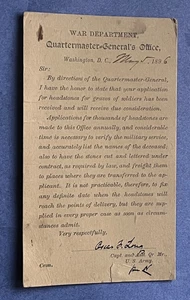 WAR DEPARTMENT,
Quartermaster-General's Office,
Washington, D. C., May 5, 1896
Sir:
By direction of the Quartermaster-General,
I have the honor to state that your application
for headstones for graves of soldiers has been
received and will receive due consideration.
Applications for thousands of headstones are
made to this Office annually, and considerable
time is necessary to verify the military service,
and accurately list the names of the deceased;
also to have the stones cut and lettered under
contract, as required by law, and freight them
to places where they are transferred to the ap-
plicant. It is not practicable, therefore, to fix
any definite date when the headstones will
reach the points of delivery, but they are sup-
plied in every proper case as soon as circum-
stances admit.
Very respectfully,
Oscar F. Long
Capt. and Qr. Mr.,
U. S. Army.